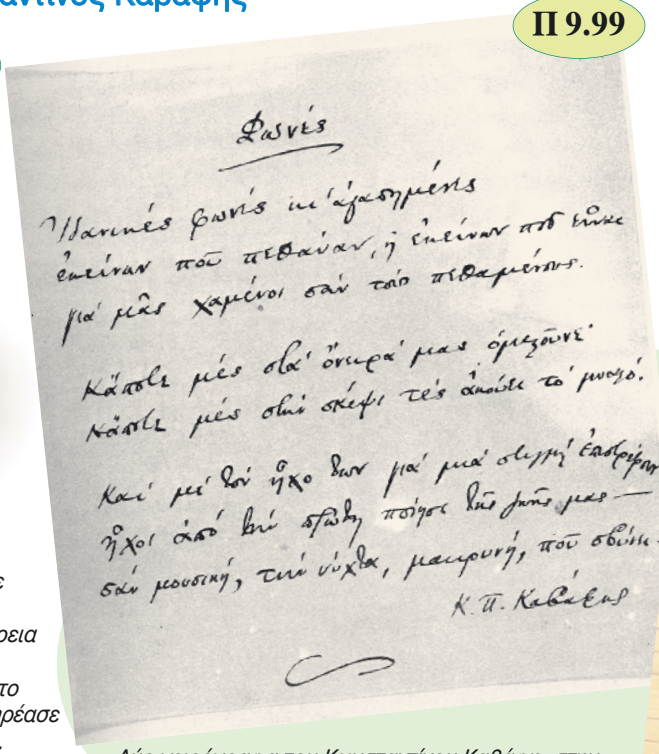 αντίνος Καβάφης
Π 9.99
Φωνές
Ἰδανικές φωνές κι' ἀγαπημένες
ἐκείνων πού πεθάναν, ἤ ἐκείνων πού εἶναι
γιά μᾶς χαμένοι σάν τούς πεθαμένους.
Κάποτε μές στά ὄνειρά μας ὁμιλοῦνε·
κάποτε μές στήν σκέψι τές ἀκούει τό μυαλό.
Καί μέ τόν ἦχο των γιά μιά στιγμή ἐπιστρέφουν
ἦχοι ἀπό τήν πρώτη ποίησι τῆς ζωῆς μας —
σάν μουσική, τήν νύχτα, μακρυνή, πού σβύνει.
Κ. Π. Καβάφης
ε
ρεια
το
ρέασε